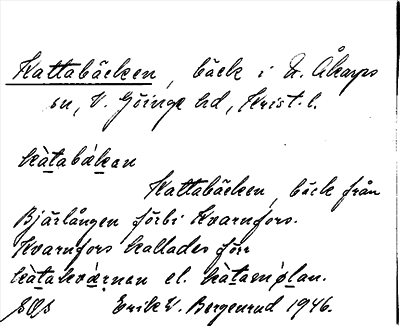 Kattabäcken, bäck i N. Åkarps
sn, V. Göinge hd, Krist. l.
kàtabákan
Kattabäcken, bäck från
Bjärlången förbi Kvarnfors.
Kvarnfors kallades förr
kàtakvárnan el. kàtamølan.
Erik V. Borgenrud 1946.